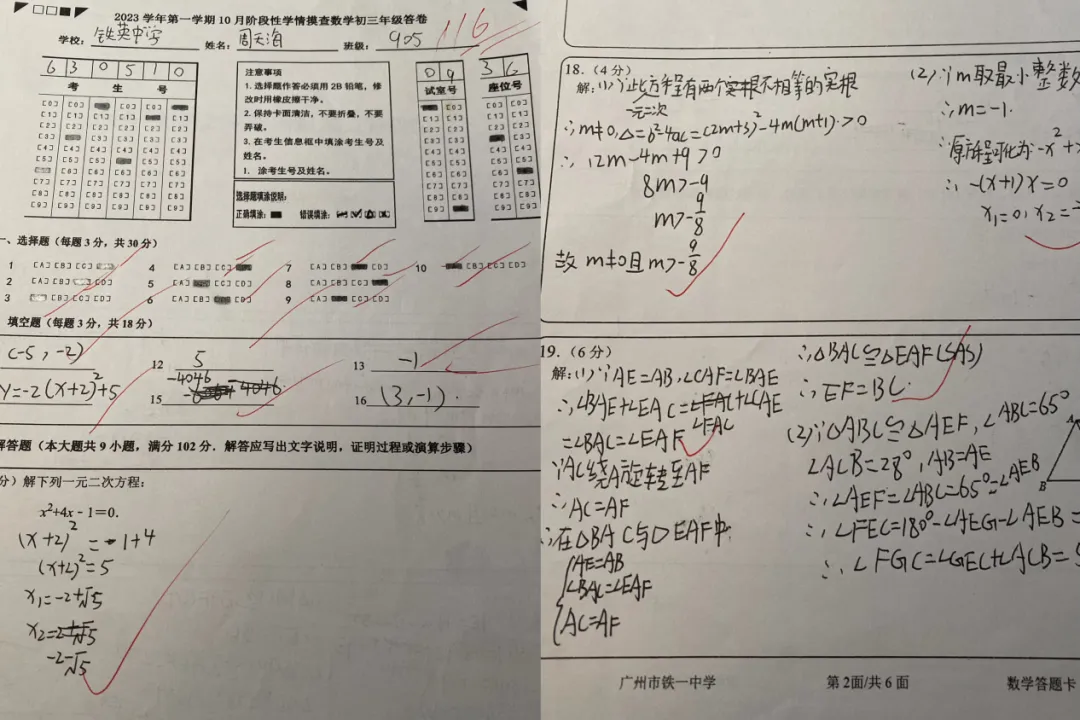 2023 学年第一学期 10 月阶段性学情摸查数学初三年级答卷
学校: 铁英中学 姓名: 周天海 班级: 905
116
6 3 0 5 1 0
考 生 号
[0] [0] [0] [0]
[1] [1] [1] [1] [1]
[2] [2] [2] [2] [2] [2]
[3] [3] [3] [3] [3]
[4] [4] [4] [4] [4] [4]
[5] [5] [5] [5] [5]
[7] [7] [7] [7] [7] [7]
[8] [8] [8] [8] [8] [8]
[9] [9] [9] [9] [9] [9]
注意事项
1. 选择题作答必须用 2B 铅笔,修
改时用橡皮擦干净。
2. 保持卡面清洁,不要折叠,不要
弄破。
3. 在考生信息框中填涂考生号及
姓名。
1. 涂考生号及姓名。
选择题填涂说明:
正确填涂: 错误填涂:
0 9
试室号
3 6
座位号
一、选择题(每题 3 分,共 30 分)
1 [A] [B] [C] 4 [A] [B] [C] 7 [A] [B] [D] 10 [B] [C] [D]
2 [A] [B] [D] 5 [A] [C] [D] 8 [A] [B] [C]
3 [B] [C] [D] 6 [A] [B] [D] 9 [A] [C] [D]
填空题(每题 3 分,共 18 分)
(-5,-2) 12 5 13 -1
y=-2(x+2)²+5 15 -4046 -4046. 16 (3,-1).
解答题(本大题共 9 小题,满分 102 分.解答应写出文字说明,证明过程或演算步骤)
分)解下列一元二次方程:
x²+4x-1=0.
(x+2)²=-1+4
(x+2)²=5
x₁=-2+√5
x₂=2+√5
-2-√5
18.(4分)
解:(1)∵此方程有两个实根不相等的实根
一元二次
∴m≠0,△=b²-4ac=(2m+3)²-4m(m+1)>0
∴12m-4m+9>0
8m>-9
m>-9/8
故 m≠0且m>-9/8
(2)∵m取最小整数
∴m=-1.
∴原方程可化为-x²+
∴-(x+1)x=0
x₁=0,x₂=-
19.(6分)
解:(1)∵AE=AB,∠CAF=∠BAE
∴∠BAE+∠EAC=∠EAC+∠CAE
∠FAC
=∠BAC=∠EAF
∵AC绕A旋转至AF
∴AC=AF
∴在△BAC与△EAF中
AE=AB
∠BAC=∠EAF
AC=AF
∴△BAC≌△EAF(SAS)
∴EF=BC.
(2)∵△ABC≌△AEF,∠ABC=65°
∠ACB=28°,AB=AE
∴∠AEF=∠ABC=65°=∠AEB
∴∠FEC=180°-∠AEG-∠AEB=
∴∠FGC=∠GEC+∠ACB=
A
B
广州市铁一中学 第 2面/共 6 面 数学答题卡